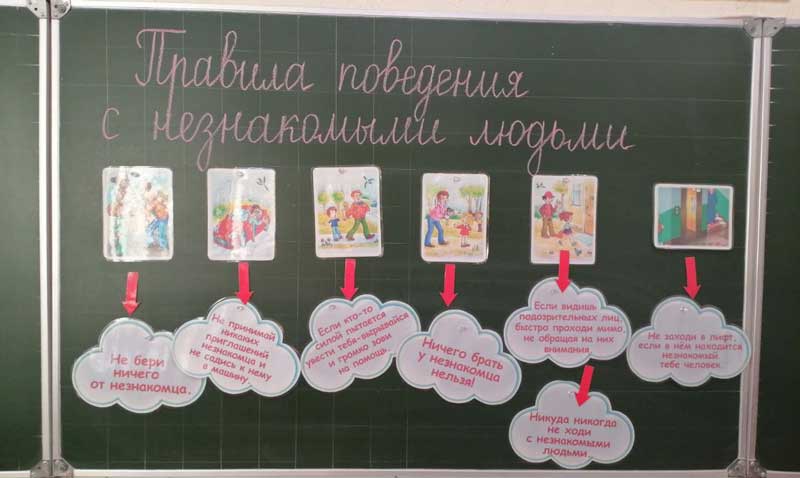 Правила поведения
с незнакомыми людьми
Не бери
ничего
от незнакомца.
Не принимай
никаких
приглашений
незнакомца и
не садись к нему
в машину
Если кто-то
силой пытается
увести тебя-вырывайся
и громко зови
на помощь.
Ничего брать
у незнакомца
нельзя!
Если видишь
подозрительных лиц,
быстро проходи мимо,
не обращая на них
внимания
Никуда никогда
не ходи
с незнакомыми
людьми.
Не заходи в лифт,
если в нём находится
незнакомый
тебе человек.